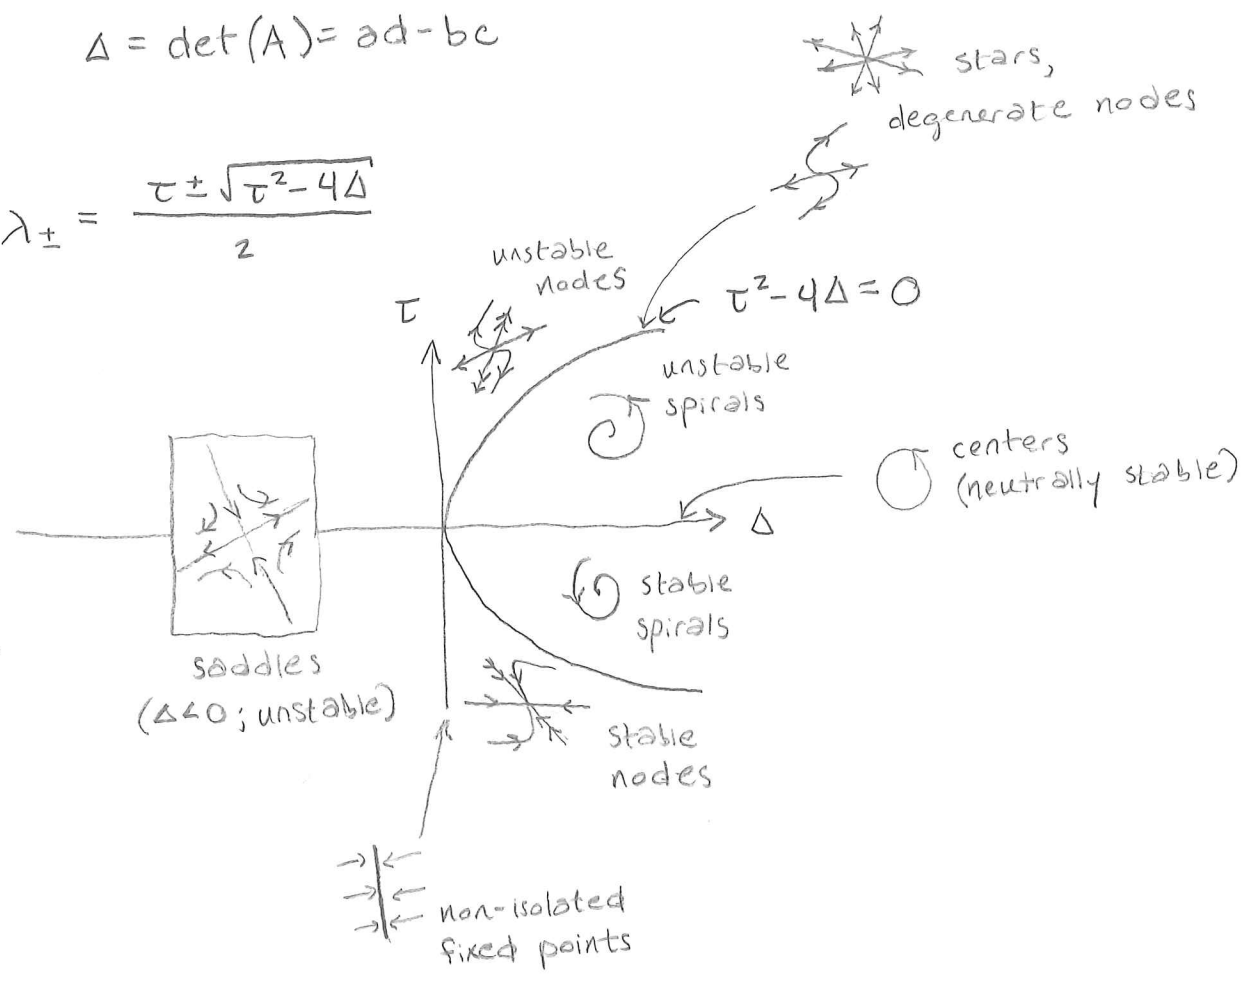 Δ = det(A) = ad-bc
stars,
degenerate nodes
λ± = τ ± √τ²-4Δ / 2
unstable
nodes
τ
τ²-4Δ=0
unstable
spirals
centers
(neutrally stable)
Δ
stable
spirals
saddles
(Δ<0; unstable)
stable
nodes
non-isolated
fixed points